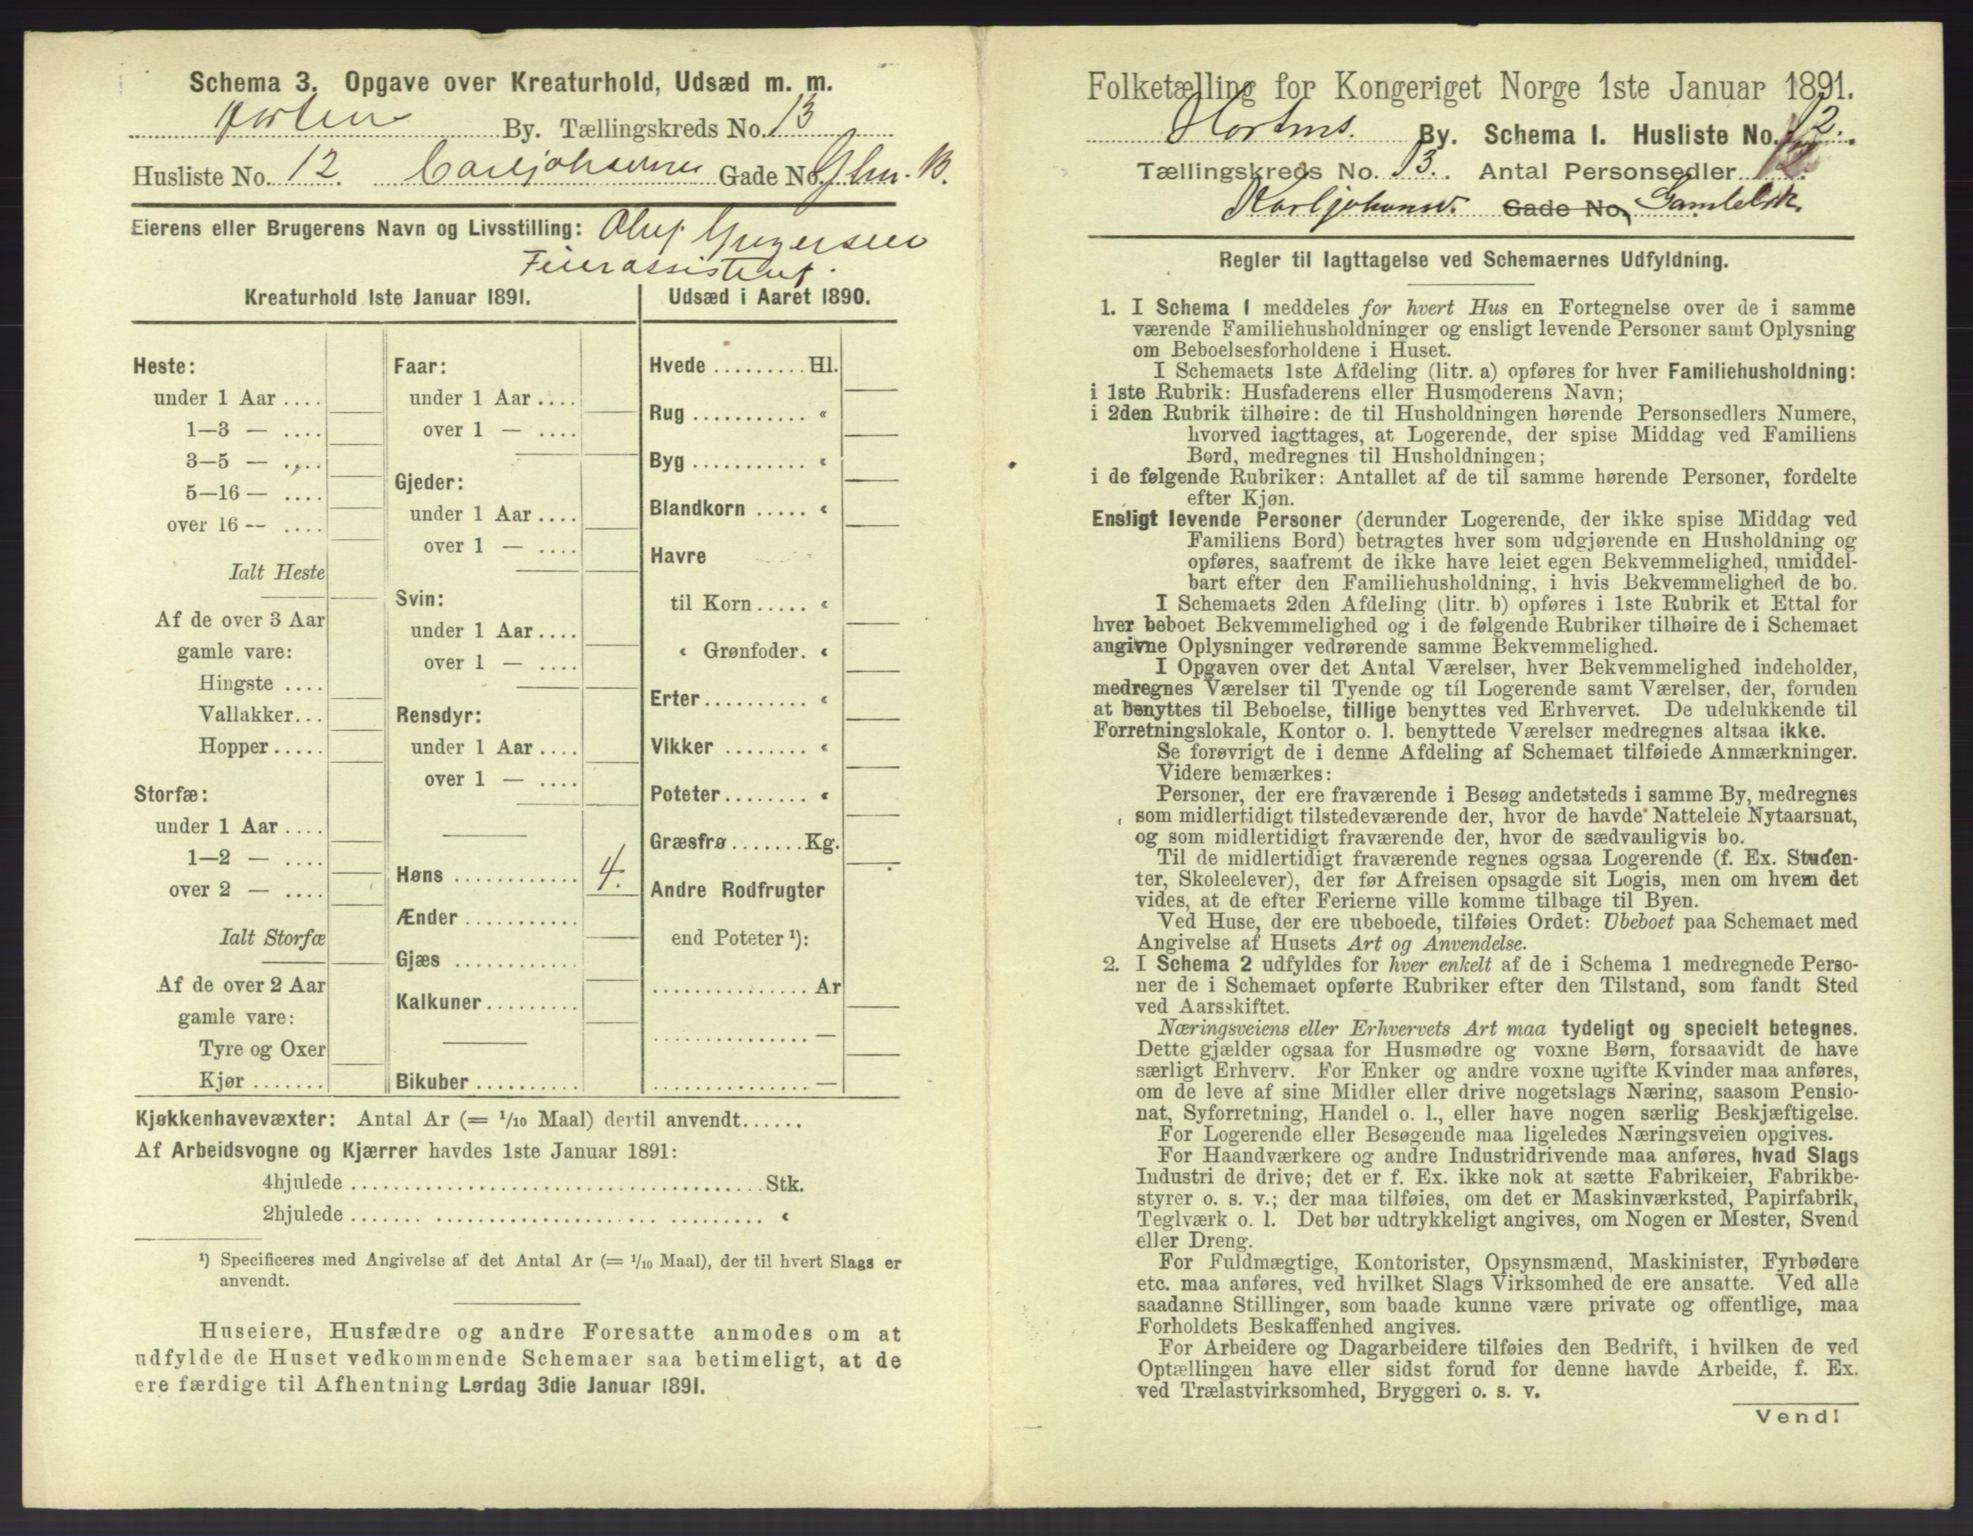 Schema 3. Opgave over Kreaturhold, Udsæd m. m.
Horten By. Tællingskreds No. 13
Husliste No. 12. Carljohansvæ Gade No.
Eierens eller Brugerens Navn og Livsstilling: Oluf
Feierassistent.
Kreaturhold 1ste Januar 1891.
Heste:
under 1 Aar ....
1—3 — ....
3—5 — ....
5—16 — ....
over 16 — ....
Ialt Heste
Af de over 3 Aar
gamle vare:
Hingste ....
Vallakker...
Hopper.....
Storfæ:
under 1 Aar ....
1—2 — ....
over 2 — ....
Ialt Storfæ
Af de over 2 Aar
gamle vare:
Tyre og Oxer
Kjør .......
Faar:
under 1 Aar ....
over 1 — ....
Gjeder:
under 1 Aar ....
over 1 — ....
Svin:
under 1 Aar ....
over 1 — ....
Rensdyr:
under 1 Aar ....
over 1 — ....
Høns ............ 4.
Ænder ...........
Gjæs ............
Kalkuner.........
Bikuber ..........
Udsæd i Aaret 1890.
Hvede ......... Hl.
Rug ........... «
Byg ........... «
Blandkorn ..... «
Havre
til Korn ..... «
« Grønfoder. «
Erter .......... «
Vikker ........ «
Poteter ........ «
Græsfrø ....... Kg.
Andre Rodfrugter
end Poteter ¹):
............... Ar
............... —
............... —
Kjøkkenhavevæxter: Antal Ar (= 1/10 Maal) dertil anvendt......
Af Arbeidsvogne og Kjærrer havdes 1ste Januar 1891:
4hjulede ........................................ Stk.
2hjulede ........................................ «
¹) Specificeres med Angivelse af det Antal Ar (= 1/10 Maal), der til hvert Slags er
anvendt.
Huseiere, Husfædre og andre Foresatte anmodes om at
udfylde de Huset vedkommende Schemaer saa betimeligt, at de
ere færdige til Afhentning Lørdag 3die Januar 1891.
Folketælling for Kongeriget Norge 1ste Januar 1891.
Hortens. By. Schema I. Husliste No. 12.
Tællingskreds No. 13. Antal Personsedler 12.
Karljohansv. Gade No,
Regler til Iagttagelse ved Schemaernes Udfyldning.
1. I Schema I meddeles for hvert Hus en Fortegnelse over de i samme
værende Familiehusholdninger og ensligt levende Personer samt Oplysning
om Beboelsesforholdene i Huset.
I Schemaets 1ste Afdeling (litr. a) opføres for hver Familiehusholdning:
i 1ste Rubrik: Husfaderens eller Husmoderens Navn;
i 2den Rubrik tilhøire: de til Husholdningen hørende Personsedlers Numere,
hvorved iagttages, at Logerende, der spise Middag ved Familiens
Bord, medregnes til Husholdningen;
i de følgende Rubriker: Antallet af de til samme hørende Personer, fordelte
efter Kjøn.
Ensligt levende Personer (derunder Logerende, der ikke spise Middag ved
Familiens Bord) betragtes hver som udgjørende en Husholdning og
opføres, saafremt de ikke have leiet egen Bekvemmelighed, umiddel-
bart efter den Familiehusholdning, i hvis Bekvemmelighed de bo.
I Schemaets 2den Afdeling (litr. b) opføres i 1ste Rubrik et Ettal for
hver beboet Bekvemmelighed og i de følgende Rubriker tilhøire de i Schemaet
angivne Oplysninger vedrørende samme Bekvemmelighed.
I Opgaven over det Antal Værelser, hver Bekvemmelighed indeholder,
medregnes Værelser til Tyende og til Logerende samt Værelser, der, foruden
at benyttes til Beboelse, tillige benyttes ved Erhvervet. De udelukkende til
Forretningslokale, Kontor o. l. benyttede Værelser medregnes altsaa ikke.
Se forøvrigt de i denne Afdeling af Schemaet tilføiede Anmærkninger.
Videre bemærkes:
Personer, der ere fraværende i Besøg andetsteds i samme By, medregnes
som midlertidigt tilstedeværende der, hvor de havde Natteleie Nytaarsnat,
og som midlertidigt fraværende der, hvor de sædvanligvis bo.
Til de midlertidigt fraværende regnes ogsaa Logerende (f. Ex. Studen-
ter, Skoleelever), der før Afreisen opsagde sit Logis, men om hvem det
vides, at de efter Ferierne ville komme tilbage til Byen.
Ved Huse, der ere ubeboede, tilføies Ordet: Ubeboet paa Schemaet med
Angivelse af Husets Art og Anvendelse.
2. I Schema 2 udfyldes for hver enkelt af de i Schema 1 medregnede Perso-
ner de i Schemaet opførte Rubriker efter den Tilstand, som fandt Sted
ved Aarsskiftet.
Næringsveiens eller Erhvervets Art maa tydeligt og specielt betegnes.
Dette gjælder ogsaa for Husmødre og voxne Børn, forsaavidt de have
særligt Erhverv. For Enker og andre voxne ugifte Kvinder maa anføres,
om de leve af sine Midler eller drive nogetslags Næring, saasom Pensio-
nat, Syforretning, Handel o. l., eller have nogen særlig Beskjæftigelse.
For Logerende eller Besøgende maa ligeledes Næringsveien opgives.
For Haandværkere og andre Industridrivende maa anføres, hvad Slags
Industri de drive; det er f. Ex. ikke nok at sætte Fabrikeier, Fabrikbe-
styrer o. s. v.; der maa tilføies, om det er Maskinværksted, Papirfabrik,
Teglværk o. l. Det bør udtrykkeligt angives, om Nogen er Mester, Svend
eller Dreng.
For Fuldmægtige, Kontorister, Opsynsmænd, Maskinister, Fyrbødere
etc. maa anføres, ved hvilket Slags Virksomhed de ere ansatte. Ved alle
saadanne Stillinger, som baade kunne være private og offentlige, maa
Forholdets Beskaffenhed angives.
For Arbeidere og Dagarbeidere tilføies den Bedrift, i hvilken de ved
Optællingen have eller sidst forud for denne havde Arbeide, f. Ex.
ved Trælastvirksomhed, Bryggeri o. s. v.
Vend!